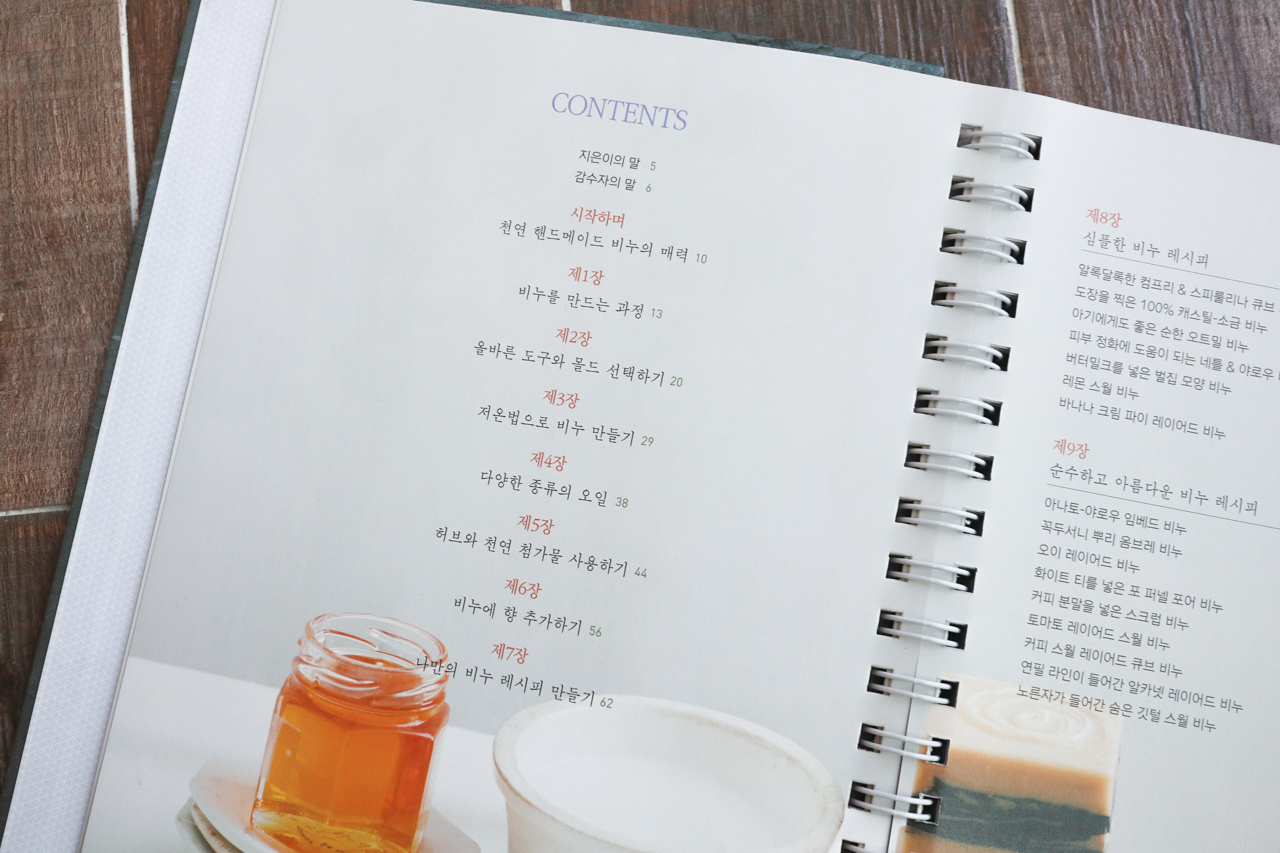 CONTENTS
지은이의 말 5
감수자의 말 6
시작하며
천연 핸드메이드 비누의 매력 10
제1장
비누를 만드는 과정 13
제2장
올바른 도구와 몰드 선택하기 20
제3장
저온법으로 비누 만들기 29
제4장
다양한 종류의 오일 38
제5장
허브와 천연 첨가물 사용하기 44
제6장
비누에 향 추가하기 56
제7장
나만의 비누 레시피 만들기 62
제8장
심플한 비누 레시피
알록달록한 컴프리 & 스피룰리나 큐브
도장을 찍은 100% 캐스틸-소금 비누
아기에게도 좋은 순한 오트밀 비누
피부 정화에 도움이 되는 네틀 & 야로우
버터밀크를 넣은 벌집 모양 비누
레몬 스월 비누
바나나 크림 파이 레이어드 비누
제9장
순수하고 아름다운 비누 레시피
아나토-야로우 임베드 비누
꼭두서니 뿌리 옴브레 비누
오이 레이어드 비누
화이트 티를 넣은 포 퍼넬 포어 비누
커피 분말을 넣은 스크럽 비누
토마토 레이어드 스월 비누
커피 스월 레이어드 큐브 비누
연필 라인이 들어간 알카넷 레이어드 비누
노른자가 들어간 숨은 깃털 스월 비누